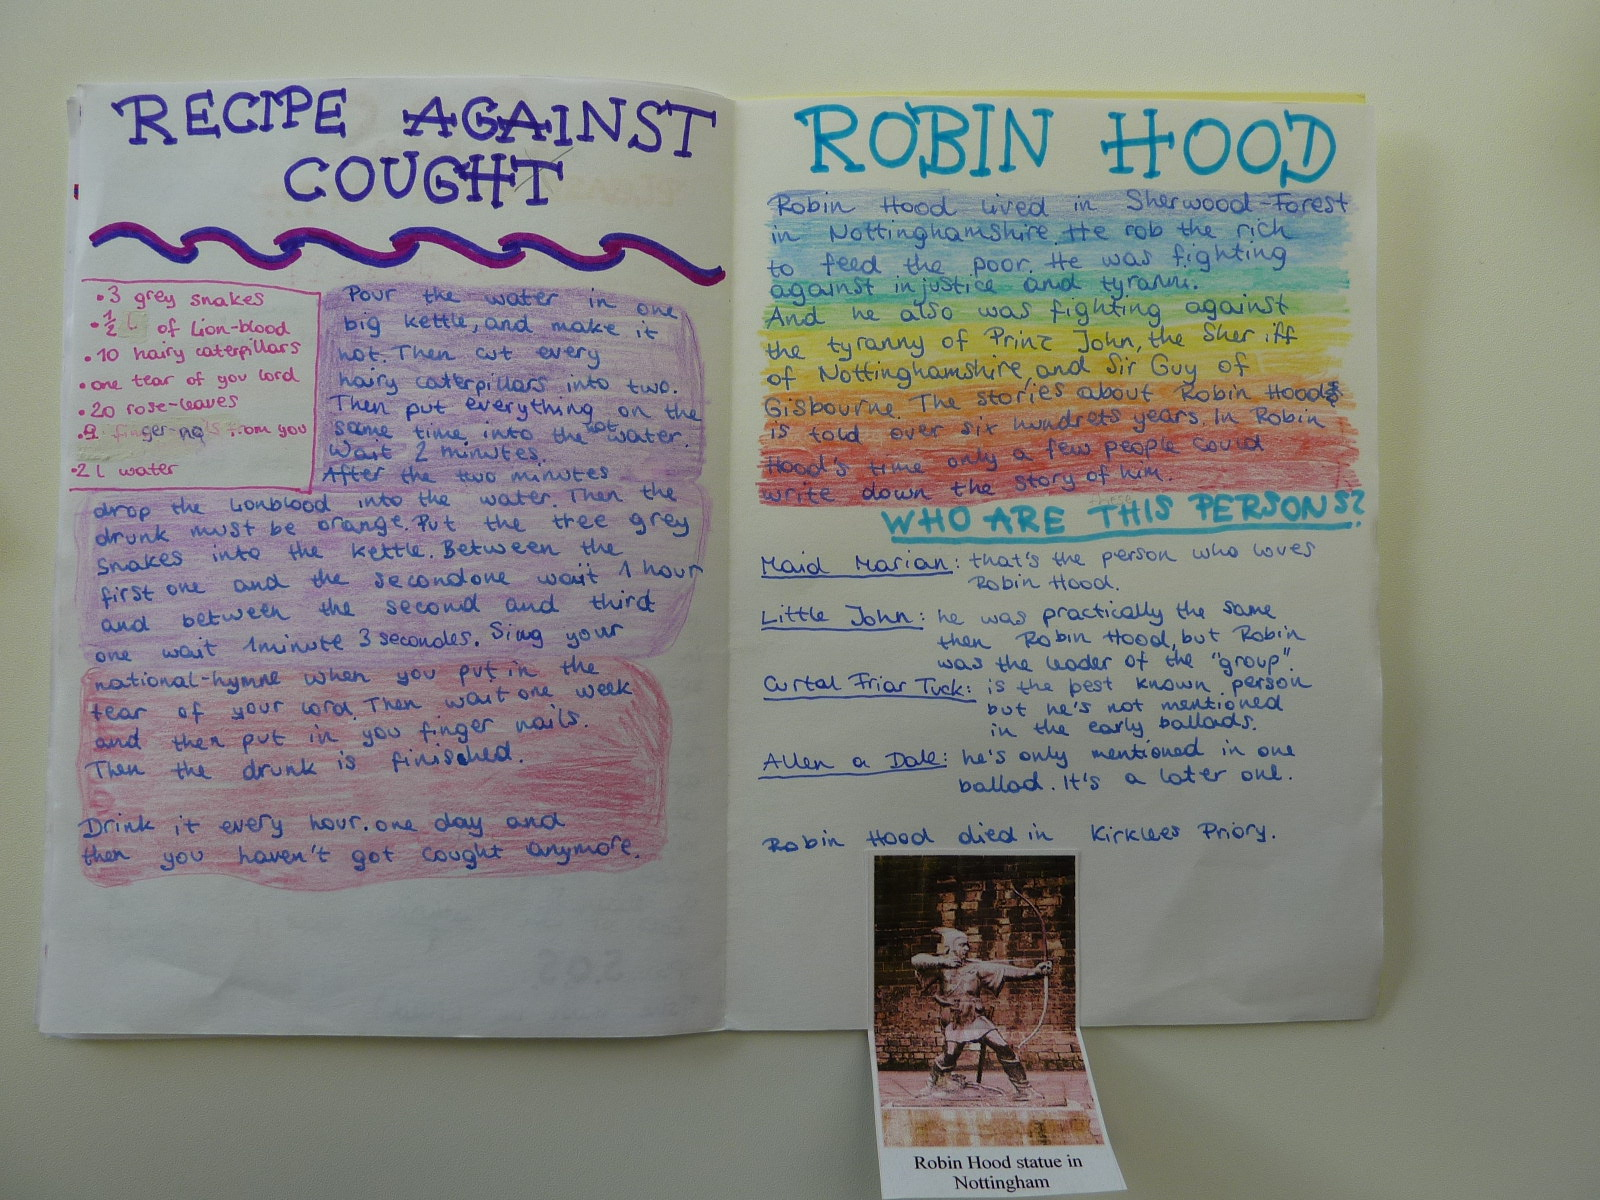 RECIPE AGAINST
COUGHT
• 3 grey snakes
• 1/2 L of Lion-blood
• 10 hairy caterpillars
• one tear of you lord
• 20 rose-leaves
• 9 from you
• 2 L water
Pour the water in one
big kettle, and make it
hot. Then cut every
hairy caterpillars into two.
Then put everything on the
same time into the hot water.
Wait 2 minutes.
After the two minutes
drop the Lionblood into the water. Then the
drunk must be orange. Put the tree grey
snakes into the kettle. Between the
first one and the secondone wait 1 hour
and between the second and third
one wait 1minute 3 secondes. Sing your
national-hymne when you put in the
tear of your lord. Then wait one week
and then put in you finger nails.
Then the drunk is finisched.
Drink it every hour. one day and
then you haven't got cought anymore.
ROBIN HOOD
Robin Hood lived in Sherwood-Forest
in Nottinghamshire. He rob the rich
to feed the poor. He was fighting
against injustice and tyranni.
And he also was fighting against
the tyranny of Prinz John, the Sheriff
of Nottinghamshire, and Sir Guy of
Gisbourne. The stories about Robin Hood
is told over six hundrets years. In Robin
Hood's time only a few people could
write down the story of him.
WHO ARE THIS PERSONS?
Maid Marian: that's the person who loves
Robin Hood.
Little John: he was practically the same
then Robin Hood, but Robin
was the leader of the "group".
Curtal Friar Tuck: is the best known person
but he's not mentioned
in the early ballads.
Allen a Dale: he's only mentioned in one
ballad. It's a later one.
Robin Hood died in Kirklees Priory.
Robin Hood statue in
Nottingham